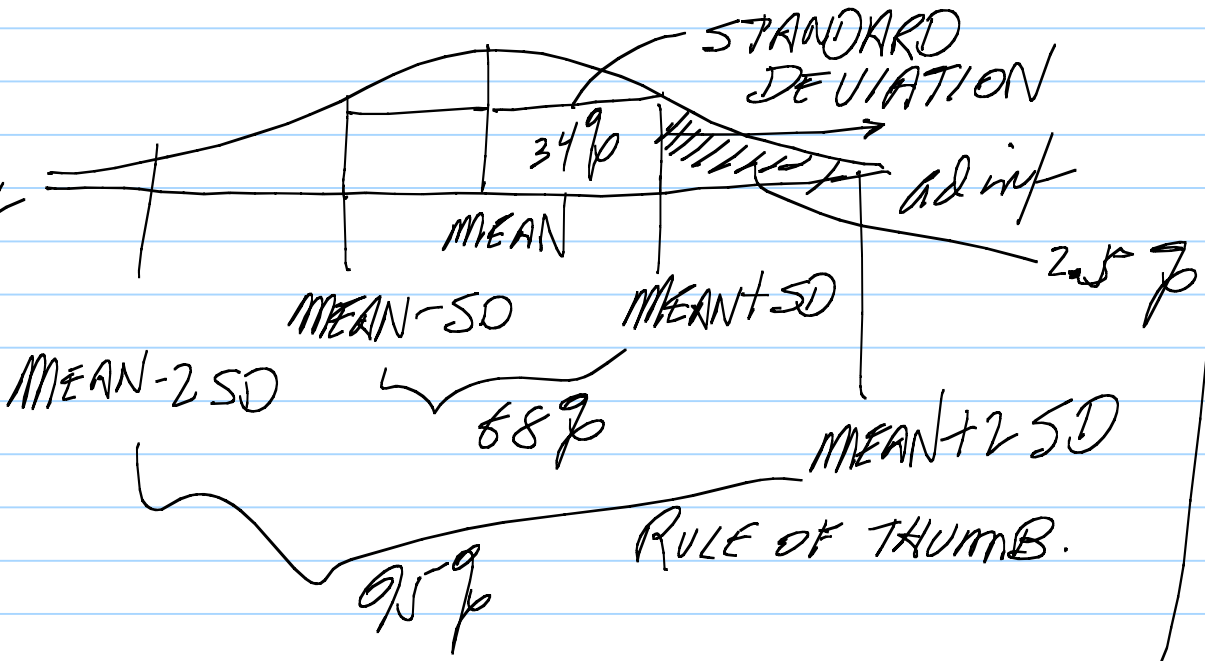 STANDARD
DEVIATION
34%
ad inf
MEAN
2.5%
MEAN-SD
MEAN+SD
MEAN-2SD
68%
MEAN+2SD
RULE OF THUMB.
95%